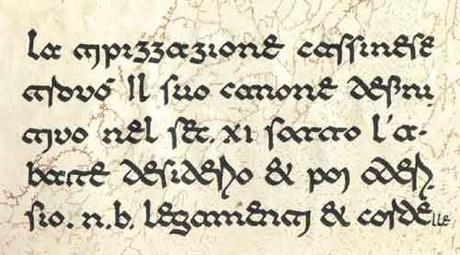 la tipizzazione cassinese
trovó Il suo canone defini,
tivo nel sec. XI sotto l'a-
bate desiderio & poi oderi,
sio. n.b. legamenti & cosdelle